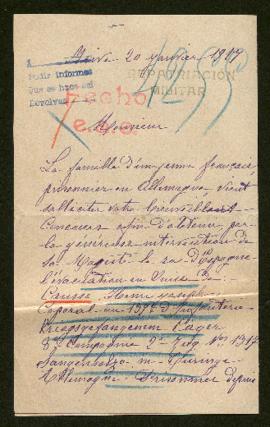 20 janvier 1917
Pedir informes
Que se haga así
Devolver
REPATRIACIÓN
MILITAR
1295
Hecho
Monsieur
La famille d'un jeune français
prisonnier en Allemagne, vient
solliciter votre bienveillant
Concours afin d'obtenir par
la généreuse intervention de
Sa Majesté le roi d'Espagne
l'évacuation en Suisse de
Henri Joseph
Caporal au d'Infanterie
Kriegsgefangenen Lager
Compagnie 2e No 1317
Langensalza in
Allemagne. Prisonnier depuis